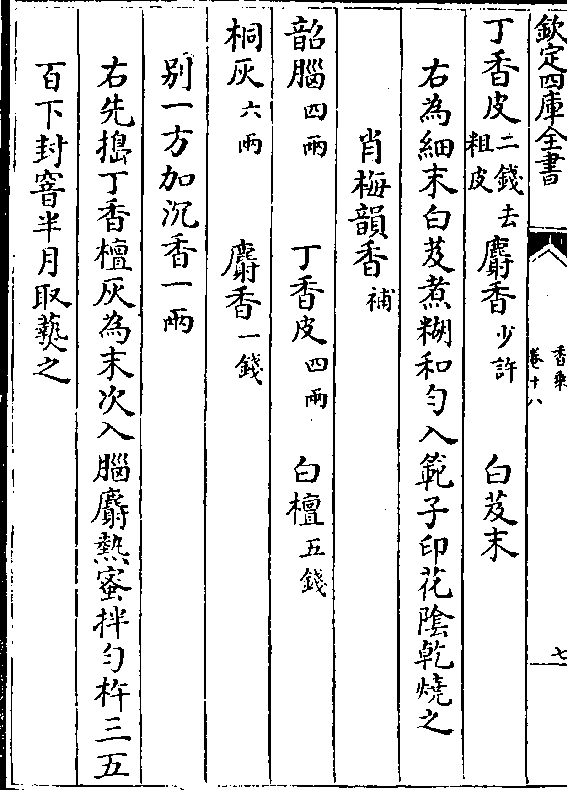 欽定四庫全書
香乘
卷十八
七
丁香皮二錢去粗皮 麝香少許 白芨末
右為細末白芨煮糊和勻入範子印花陰乾燒之
肖梅韻香補
韶腦四兩 丁香皮四兩 白檀五錢
桐灰六兩 麝香一錢
别一方加沉香一兩
右先搗丁香檀灰為末次入腦麝熱蜜拌勻杵三五
百下封窨半月取爇之